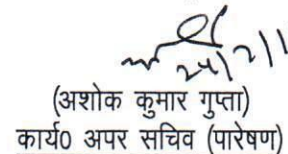 (अशोक कुमार गुप्ता)
कार्य0 अपर सचिव (पारेषण)